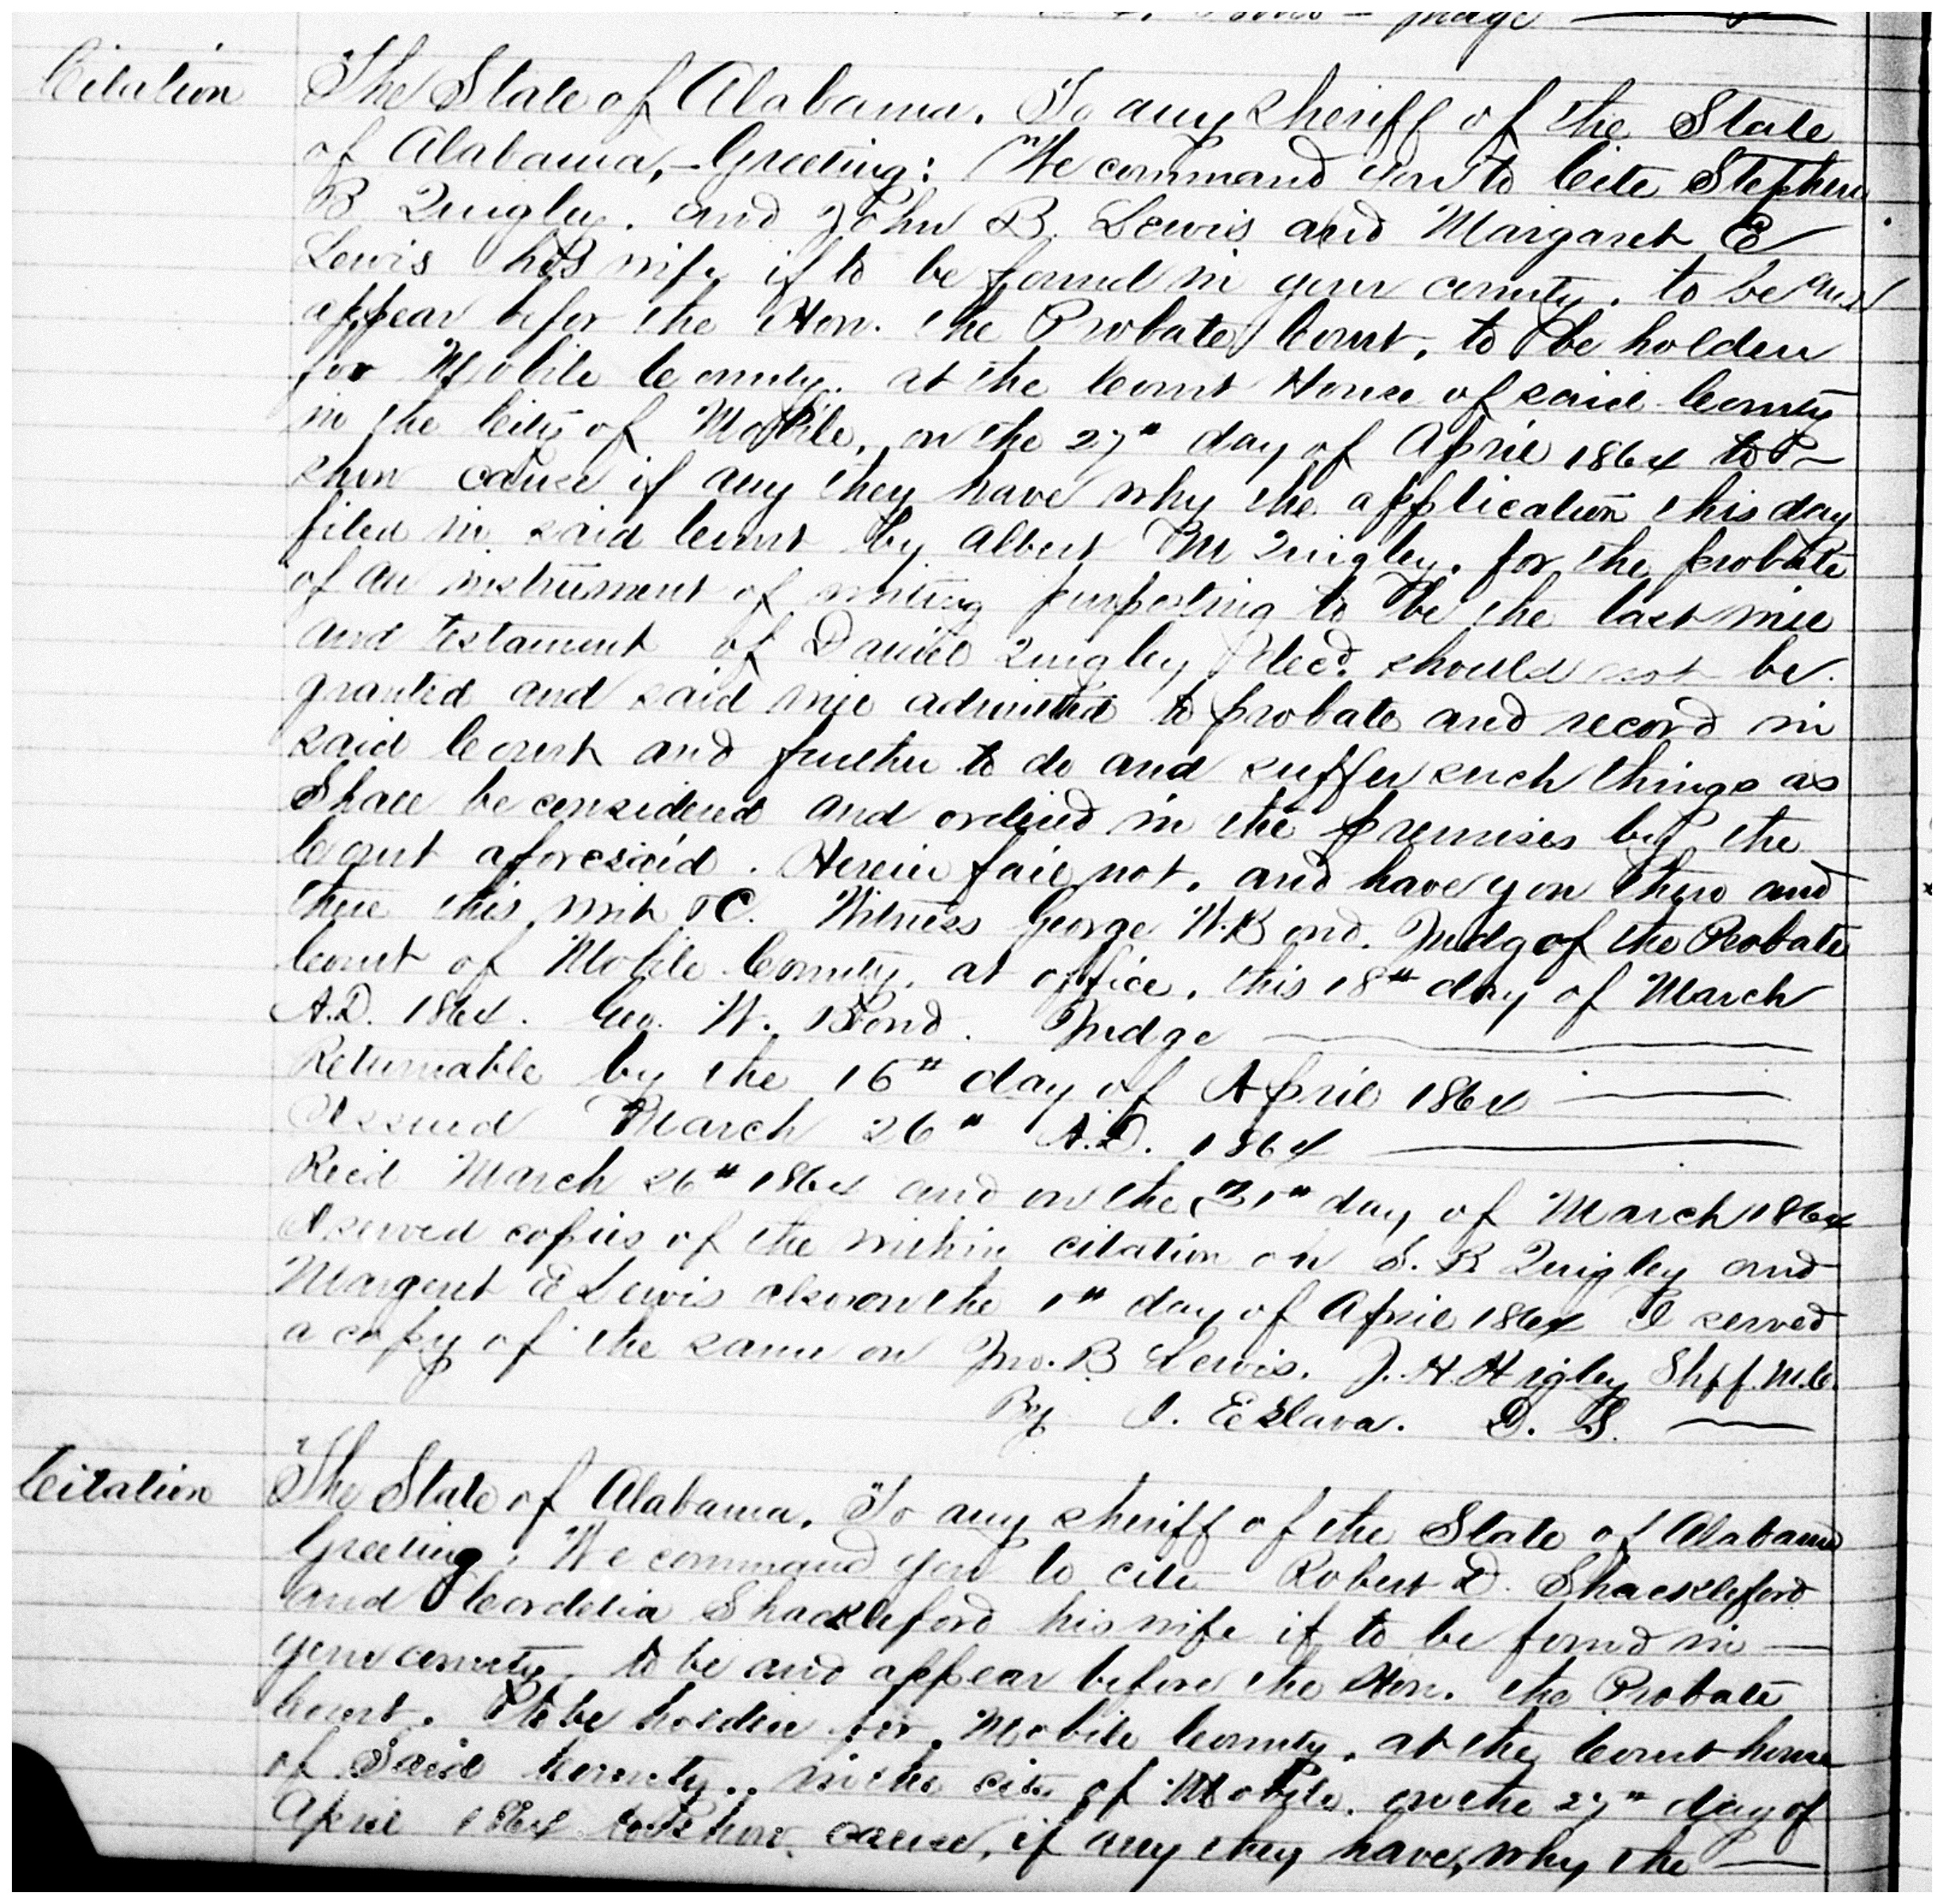 Judge
Citation
The State of Alabama. To any Sheriff of the State
of Alabama,- Greeting: We command you to Cite Stephen
B Quigley. and John B. Lewis and Margaret E
Lewis his wife if to be found in your county. to be and
appear befor the Hon. the Probate Court, to be holden
for Mobile County. at the Court House of said County
in the City of Mobile, on the 27" day of April 1864 to
show cause if any they have why the application this day
filed in said Court by Albert M Quigley. for the probate
of an instrument of writing purporting to be the last will
and testament of Daniel Quigley Decd. should not be
granted and said will admitted to probate and record in
said Court and further to do and suffer such things as
Shall be considered and ordered in the premises by the
Court aforesaid. Herein fail not, and have you then and
there this writ &C. Witness George W. Bond. Judg of the Probate
Court of Mobile County, at office, this 18" day of March
A.D. 1864. Geo. W. Bond. Judge
Returnable by the 16" day of April 1864
Issued March 26" A.D. 1864
Recd March 26" 1864 and on the 31" day of March 1864
I served copies of the within citation on S. B Quigley and
Margert E Lewis also on the 1" day of April 1864 I served
a copy of the same on Jno. B Lewis. J. H. Higley Shff. M.C.
By I. Eslava. D. S.
Citation
The State of Alabama. To any Sheriff of the State of Alabama
Greeting, We command you to cite Robert D. Shackleford
and Cordelia Shackleford his wife if to be found in
your county, to be and appear before the Hon. the Probate
Court. to be holden for Mobile County. at the Court house
of Said County.. in the city of Mobile. on the 27" day of
April 1864 to show cause, if any they have, why the